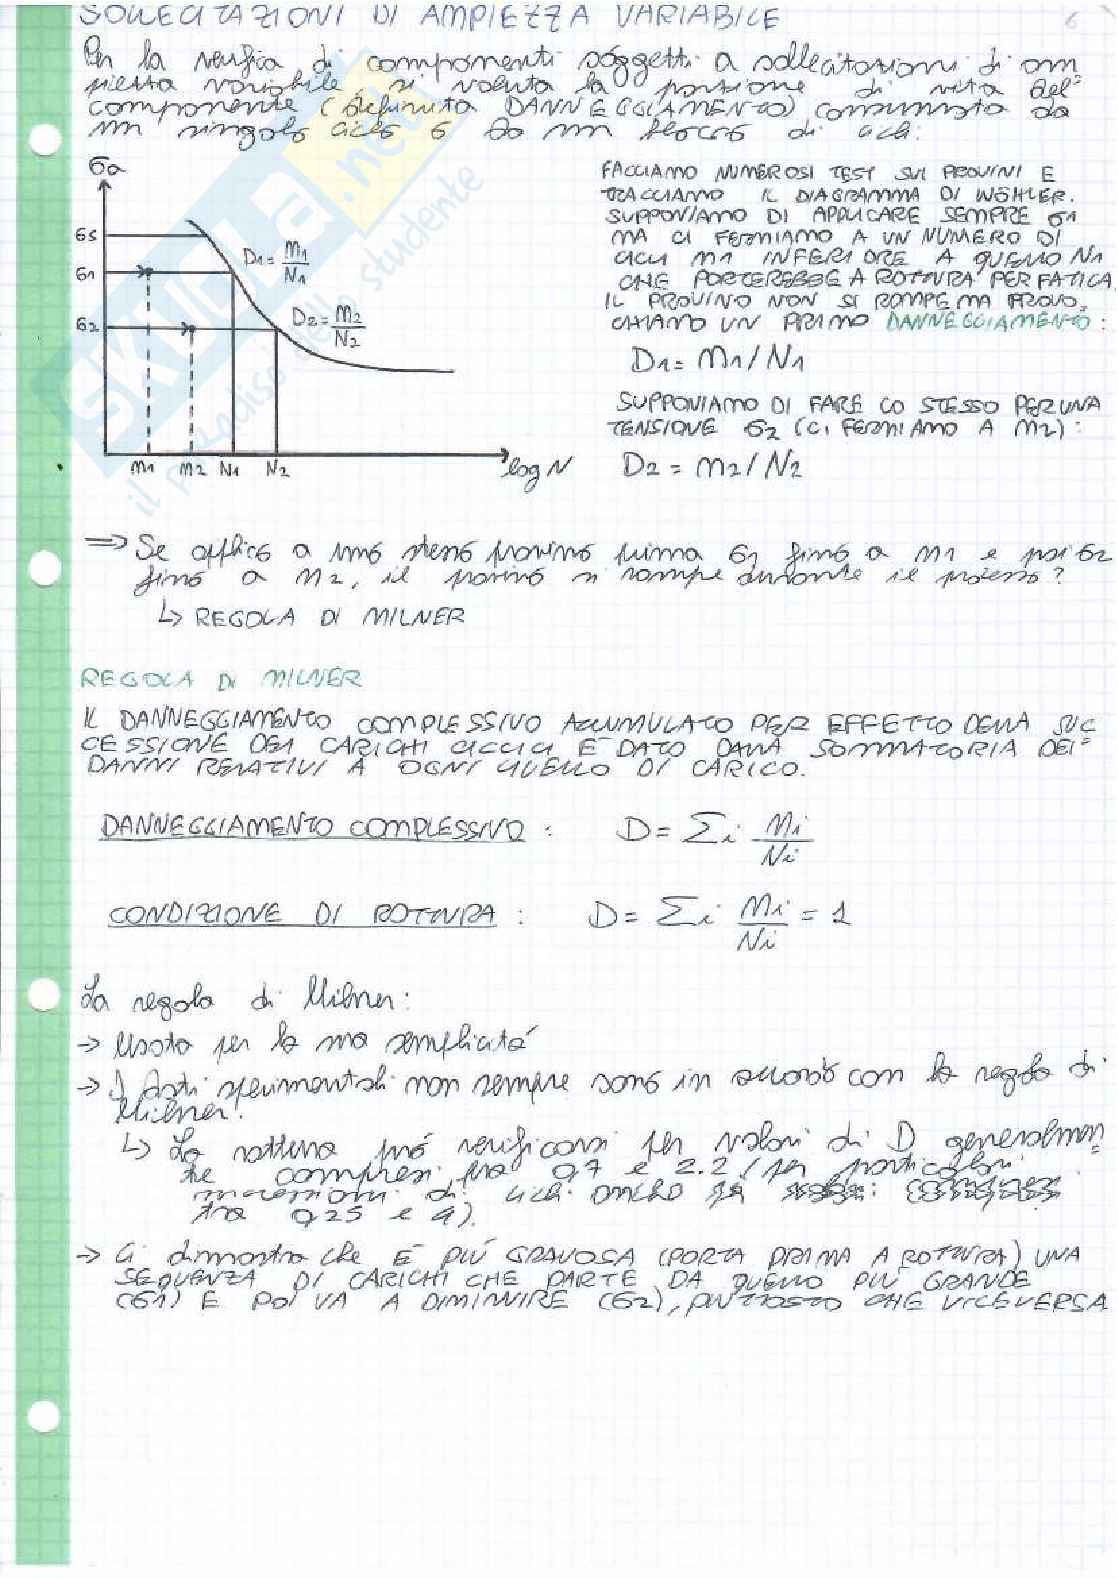 SOLLECITAZIONI DI AMPIEZZA VARIABILE
6
Per la verifica di componenti soggetti a sollecitazioni di am=
piezza variabile, si valuta la porzione di vita del
componente (definita DANNEGGIAMENTO) consumata da
un singolo ciclo o da un blocco di cicli:
σa
σs
σ1
σ2
D1 = n1/N1
D2 = n2/N2
n1 n2 N1 N2
log N
FACCIAMO NUMEROSI TEST SUI PROVINI E
TRACCIAMO IL DIAGRAMMA DI WÖHLER.
SUPPONIAMO DI APPLICARE SEMPRE σ1
MA CI FERMIAMO A UN NUMERO DI
CICLI n1 INFERIORE A QUELLO N1
CHE PORTEREBBE A ROTTURA PER FATICA.
IL PROVINO NON SI ROMPE MA PROVO=
CHIAMO UN PRIMO DANNEGGIAMENTO:
D1 = n1 / N1
SUPPONIAMO DI FARE LO STESSO PER UNA
TENSIONE σ2 (CI FERMIAMO A n2):
D2 = n2 / N2
⇒ Se applico a uno stesso provino prima σ1 fino a n1 e poi σ2
fino a n2, il provino si rompe durante il processo?
↳ REGOLA DI MILNER
REGOLA DI MILNER
IL DANNEGGIAMENTO COMPLESSIVO ACCUMULATO PER EFFETTO DELLA SUC
CESSIONE DEI CARICHI CICLICI È DATO DALLA SOMMATORIA DEI=
DANNI RELATIVI A OGNI LIVELLO DI CARICO.
DANNEGGIAMENTO COMPLESSIVO : D = Σi ni/Ni
CONDIZIONE DI ROTTURA : D = Σi ni/Ni = 1
La regola di Milner:
→ Usata per la sua semplicità
→ I dati sperimentali non sempre sono in accordo con la regola di
Milner!
↳ La rottura può verificarsi per valori di D generalmen=
te compresi fra 0,7 e 2.2 (per particolari
successioni di cicli anche
tra 0,25 e 4).
→ Si dimostra che È PIÙ GRAVOSA (PORTA PRIMA A ROTTURA) UNA
SEQUENZA DI CARICHI CHE PARTE DA QUELLO PIÙ GRANDE
(σ1) E POI VA A DIMINUIRE (σ2), PIUTTOSTO CHE VICEVERSA
SKUOLA.net
il paradiso dello studente